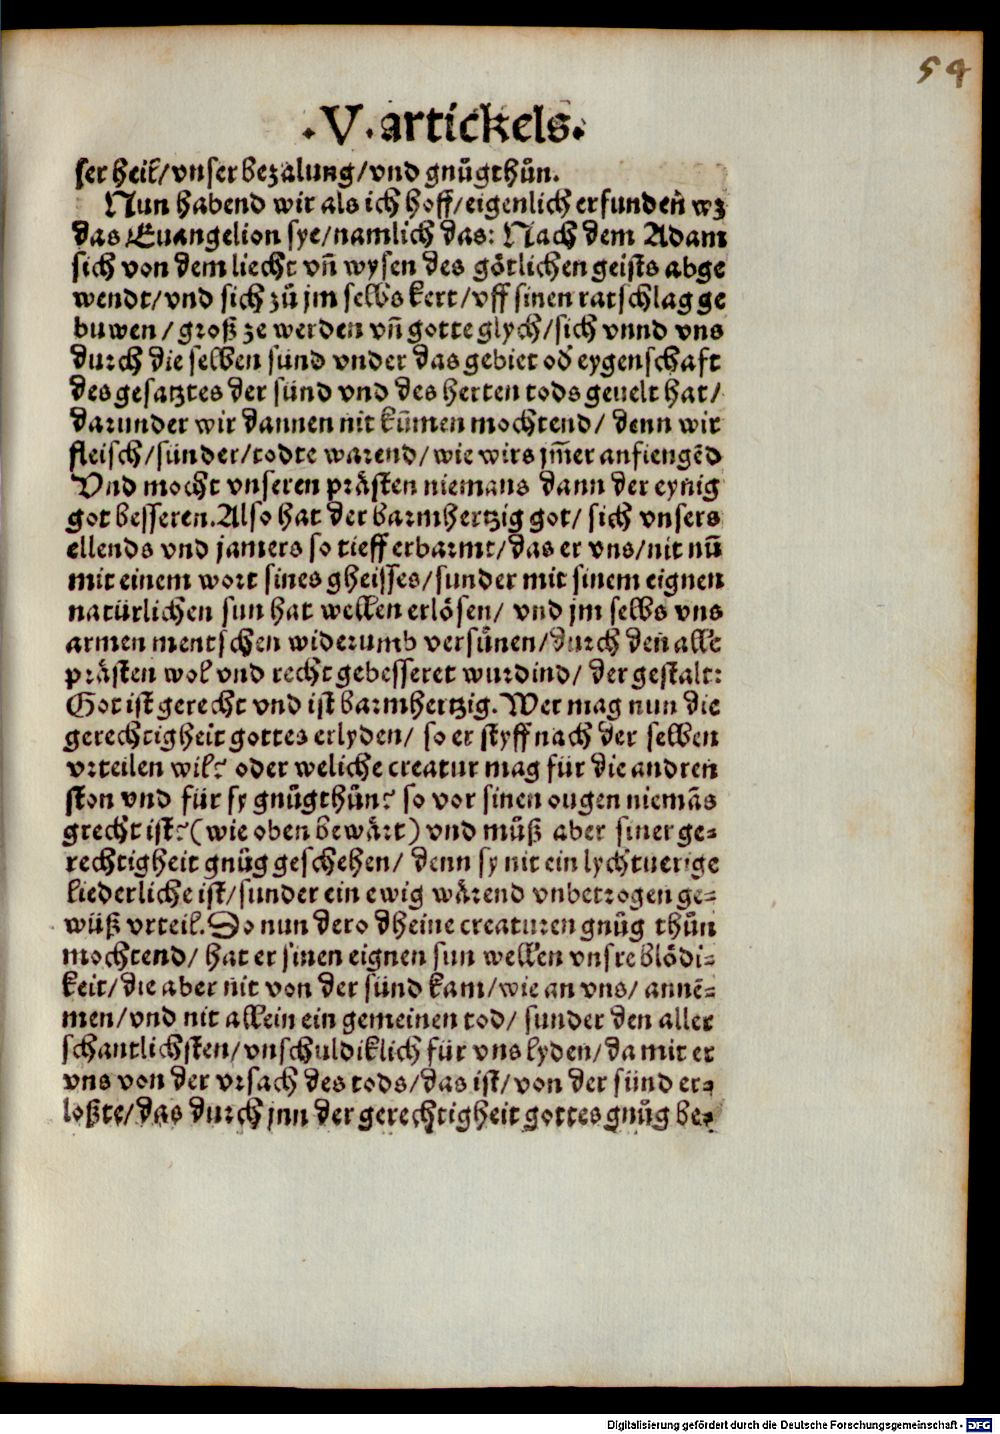 54
.V. artickels.
ser heil/vnser bezalung/vnd gnuͤgthuͦn.
Nun habend wir als ich hoff/eigenlich erfunden̄ wz
das Euangelion sye/namlich das: Nach dem Adam
sich von dem liecht vn̄ wysen des goͤtlichen geists abge
wendt/vnd sich zuͦ jm selbs kert/vff sinen ratschlag ge
buwen/groß ze werden vn̄ gotte glych/sich vnnd vns
durch die selben sünd vnder das gebiet od̓ eygenschaft
des gesatztes der sünd vnd des herten tods geuelt hat/
darunder wir dannen nit kum̄en mochtend/ denn wir
fleisch/sünder/todte warend/wie wirs jm̄er anfiengēd
Vnd mocht vnseren praͤsten niemans dann der eynig
got besseren.Also hat der barmhertzig got/ sich vnsers
ellends vnd jamers so tieff erbarmt/das er vns/nit nū
mit einem wort sines gheisses/sunder mit sinem eignen
natürlichen sun hat wellen erloͤsen/ vnd jm selbs vns
armen mentschen widerumb versuͤnen/durch den alle
praͤsten wol vnd recht gebesseret wurdind/ der gestalt:
Got ist gerecht vnd ist barmhertzig. Wer mag nun die
gerechtigheit gottes erlyden/ so er styff nach der selben
vrteilen wil? oder weliche creatur mag für die andren
ston vnd für sy gnuͦgthuͦn? so vor sinen ougen niemās
grecht ist?(wie oben bewaͤrt) vnd muͦß aber siner ge-
rechtigheit gnuͦg geschehen/ denn sy nit ein lychtuerige
liederliche ist/sunder ein ewig waͤrend vnbetrogen ge-
wüß vrteil.So nun dero dheine creaturen gnuͦg thuͦn
mochtend/ hat er sinen eignen sun wellen vnsre bloͤdi-
keit/die aber nit von der sünd kam/wie an vns/ annē-
men/vnd nit allein ein gemeinen tod/ sunder den aller
schantlichsten/vnschuldiklich für vns lyden/da mit er
vns von der vrsach des tods/das ist/von der sünd er-
loßte/das durch jnn der gerechtigheit gottes gnuͦg be-
Digitalisierung gefördert durch die Deutsche Forschungsgemeinschaft - DFG